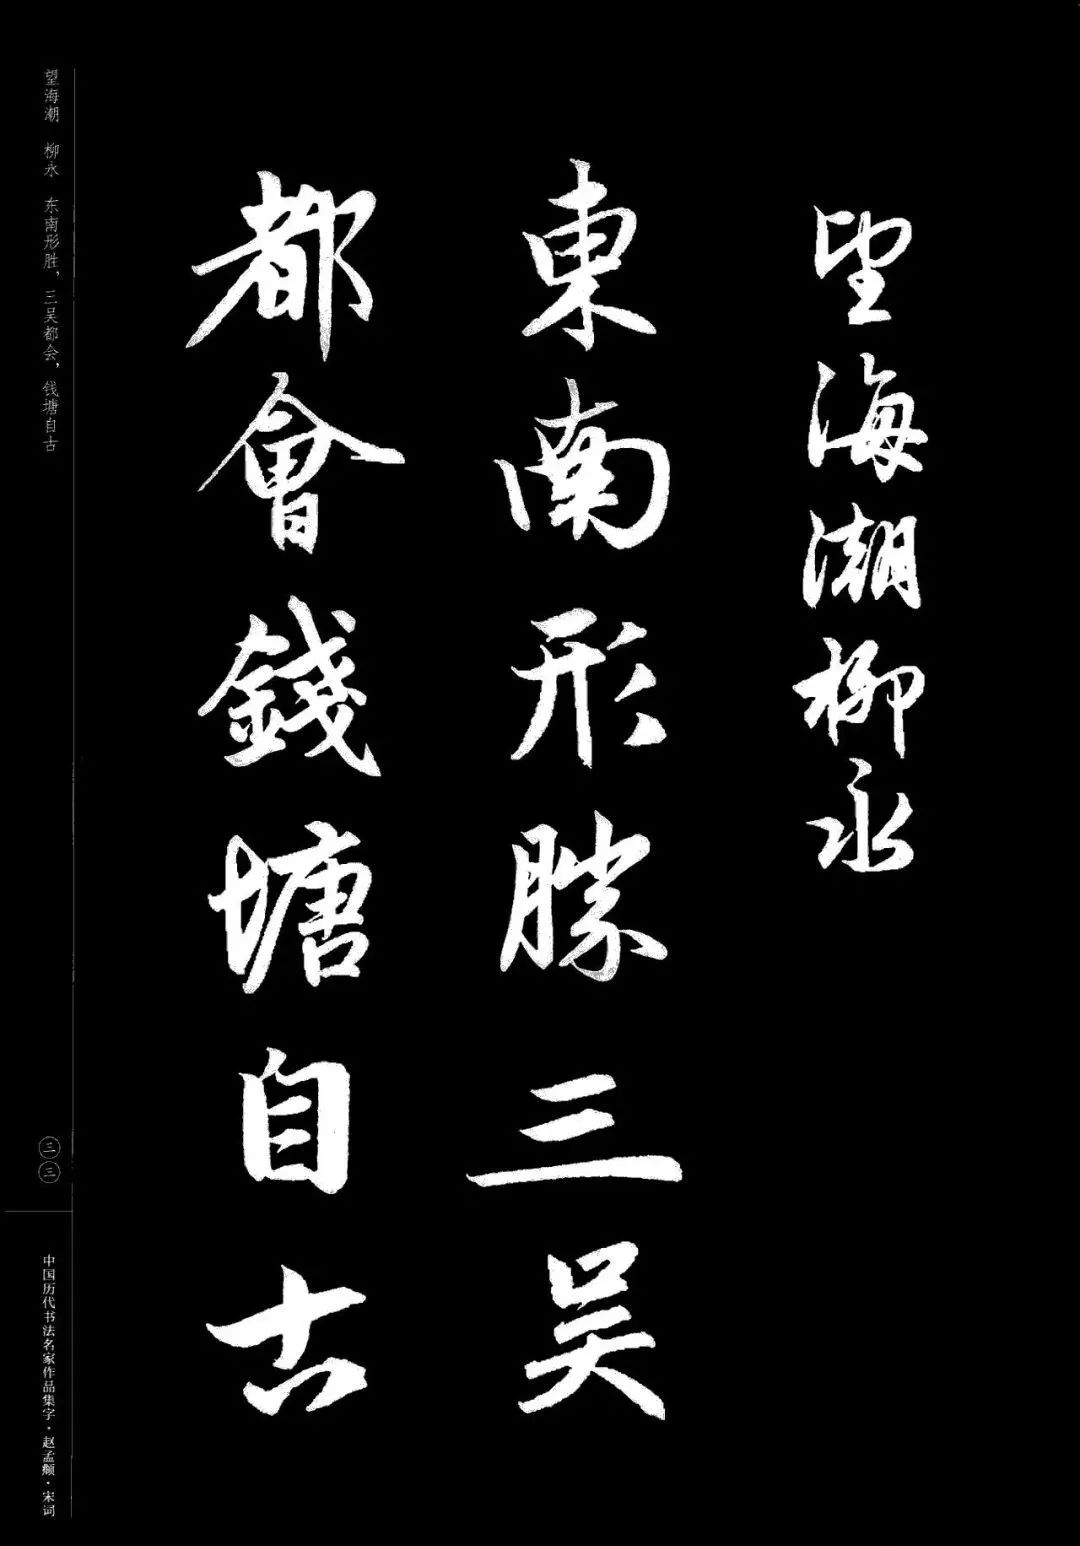 望海潮柳永
東南形勝三吴
都會錢塘自古
望海潮　柳永　东南形胜，三吴都会，钱塘自古
三三
中国历代书法名家作品集字·赵孟頫·宋词